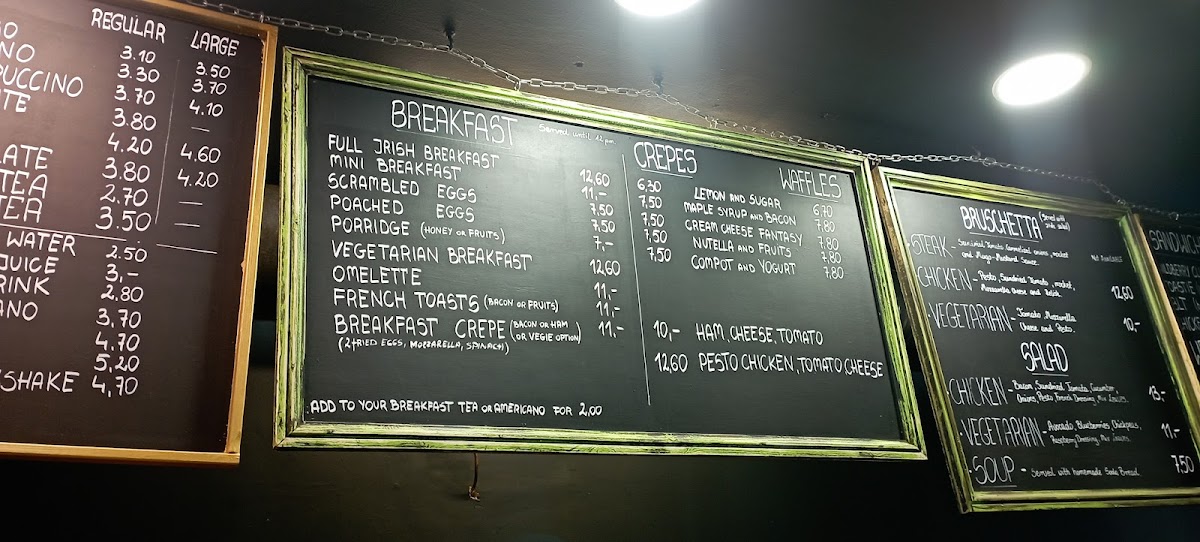 REGULAR LARGE
3.10 3.50
NO 3.30 3.70
PUCCINO 3.70 4.10
TE 3.80 —
4.20 4.60
LATE 3.80 4.20
TEA 2.70 —
TEA 3.50 —
WATER 2.50
JUICE 3,-
RINK 2.80
ANO 3.70
4.70
5.20
SHAKE 4,70
BREAKFAST Served until 12 pm
FULL IRISH BREAKFAST 12,60
MINI BREAKFAST 11,-
SCRAMBLED EGGS 7,50
POACHED EGGS 7,50
PORRIDGE (HONEY OR FRUITS) 7,-
VEGETARIAN BREAKFAST 12,60
OMELETTE 11,-
FRENCH TOASTS (BACON OR FRUITS) 11,-
BREAKFAST CREPE (BACON OR HAM OR VEGIE OPTION) 11,-
(2 FRIED EGGS, MOZZARELLA, SPINACH)
ADD TO YOUR BREAKFAST TEA OR AMERICANO FOR 2,00
CREPES WAFFLES
6,30 LEMON AND SUGAR 6,70
7,50 MAPLE SYRUP AND BACON 7,80
7,50 CREAM CHEESE FANTASY 7,80
7,50 NUTELLA AND FRUITS 7,80
7,50 COMPOT AND YOGURT 7,80
10,- HAM, CHEESE, TOMATO
12,60 PESTO CHICKEN, TOMATO CHEESE
BRUSCHETTA (Served with side salad)
-STEAK- Sundried Tomato, Caramelized onions, rocket Not AVAILABLE
and Mayo-Mustard Sauce.
-CHICKEN- Pesto, Sundried Tomato, rocket, 12,60
Mozzarella cheese and Relish.
-VEGETARIAN- Tomato, Mozzarella 10,-
Cheese and Pesto.
SALAD
CHICKEN- Bacon, Sundried Tomato, Cucumber, 13,-
Onions, Pesto French Dressing, Mix Leaves.
-VEGETARIAN- Avocado, Blueberries, Chickpeas, 11,-
Raspberry Dressing, Mix Leaves.
-SOUP - Served with homemade Soda Bread. 7,50